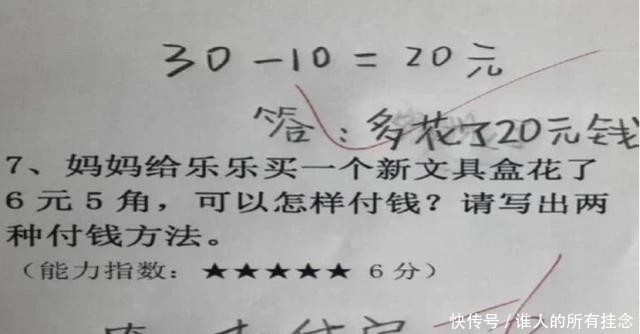 30-10=20元
答：多花了20元钱
7、妈妈给乐乐买一个新文具盒花了
6元5角，可以怎样付钱？请写出两
种付钱方法。
（能力指数：★★★★★ 6分）
快传号/谁人的所有挂念